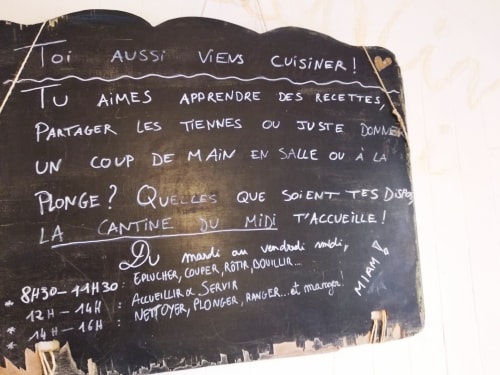 TOI AUSSI VIENS CUISINER!
TU AIMES APPRENDRE DES RECETTES,
PARTAGER LES TIENNES OU JUSTE DONNER
UN COUP DE MAIN EN SALLE OU À LA
PLONGE? QUELLES QUE SOIENT TES DISPOS
LA CANTINE DU MIDI T'ACCUEILLE!
Du mardi au vendredi midi,
* 8H30-11H30: EPLUCHER, COUPER, RÔTIR, BOUILLIR...
* 12H-14H: ACCUEILLIR & SERVIR
* 14H-16H: NETTOYER, PLONGER, RANGER...et manger!
MIAM!